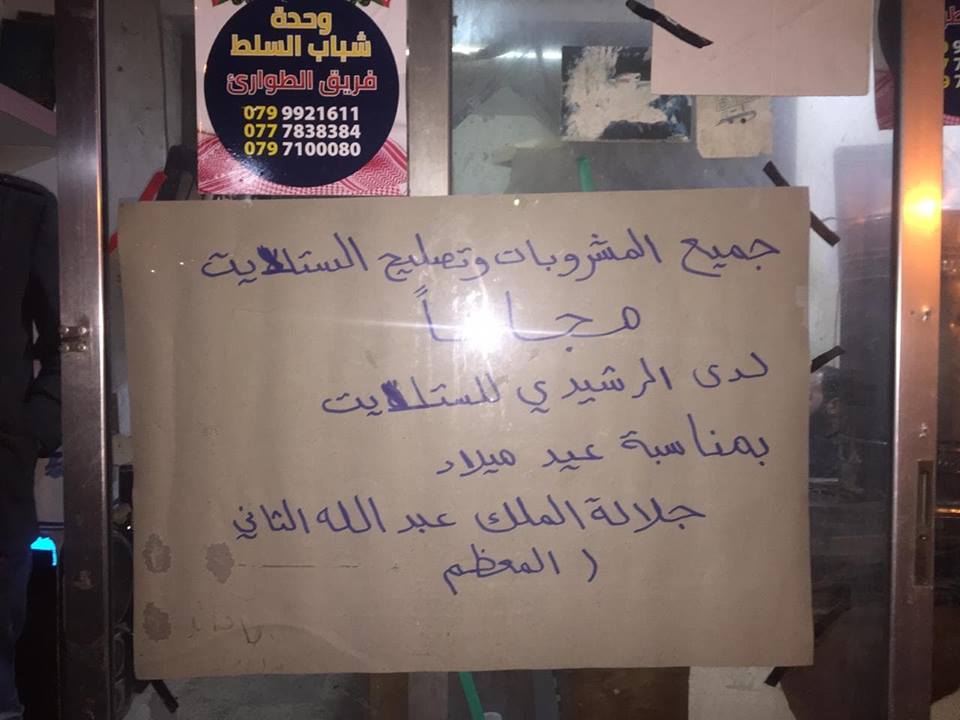 وحدة
شباب السلط
فريق الطوارئ
079 9921611
077 7838384
079 7100080
جميع المشروبات وتصليح الستلايت
مجاناً
لدى الرشيدي للستلايت
بمناسبة عيد ميلاد
جلالة الملك عبد الله الثاني
( المعظم